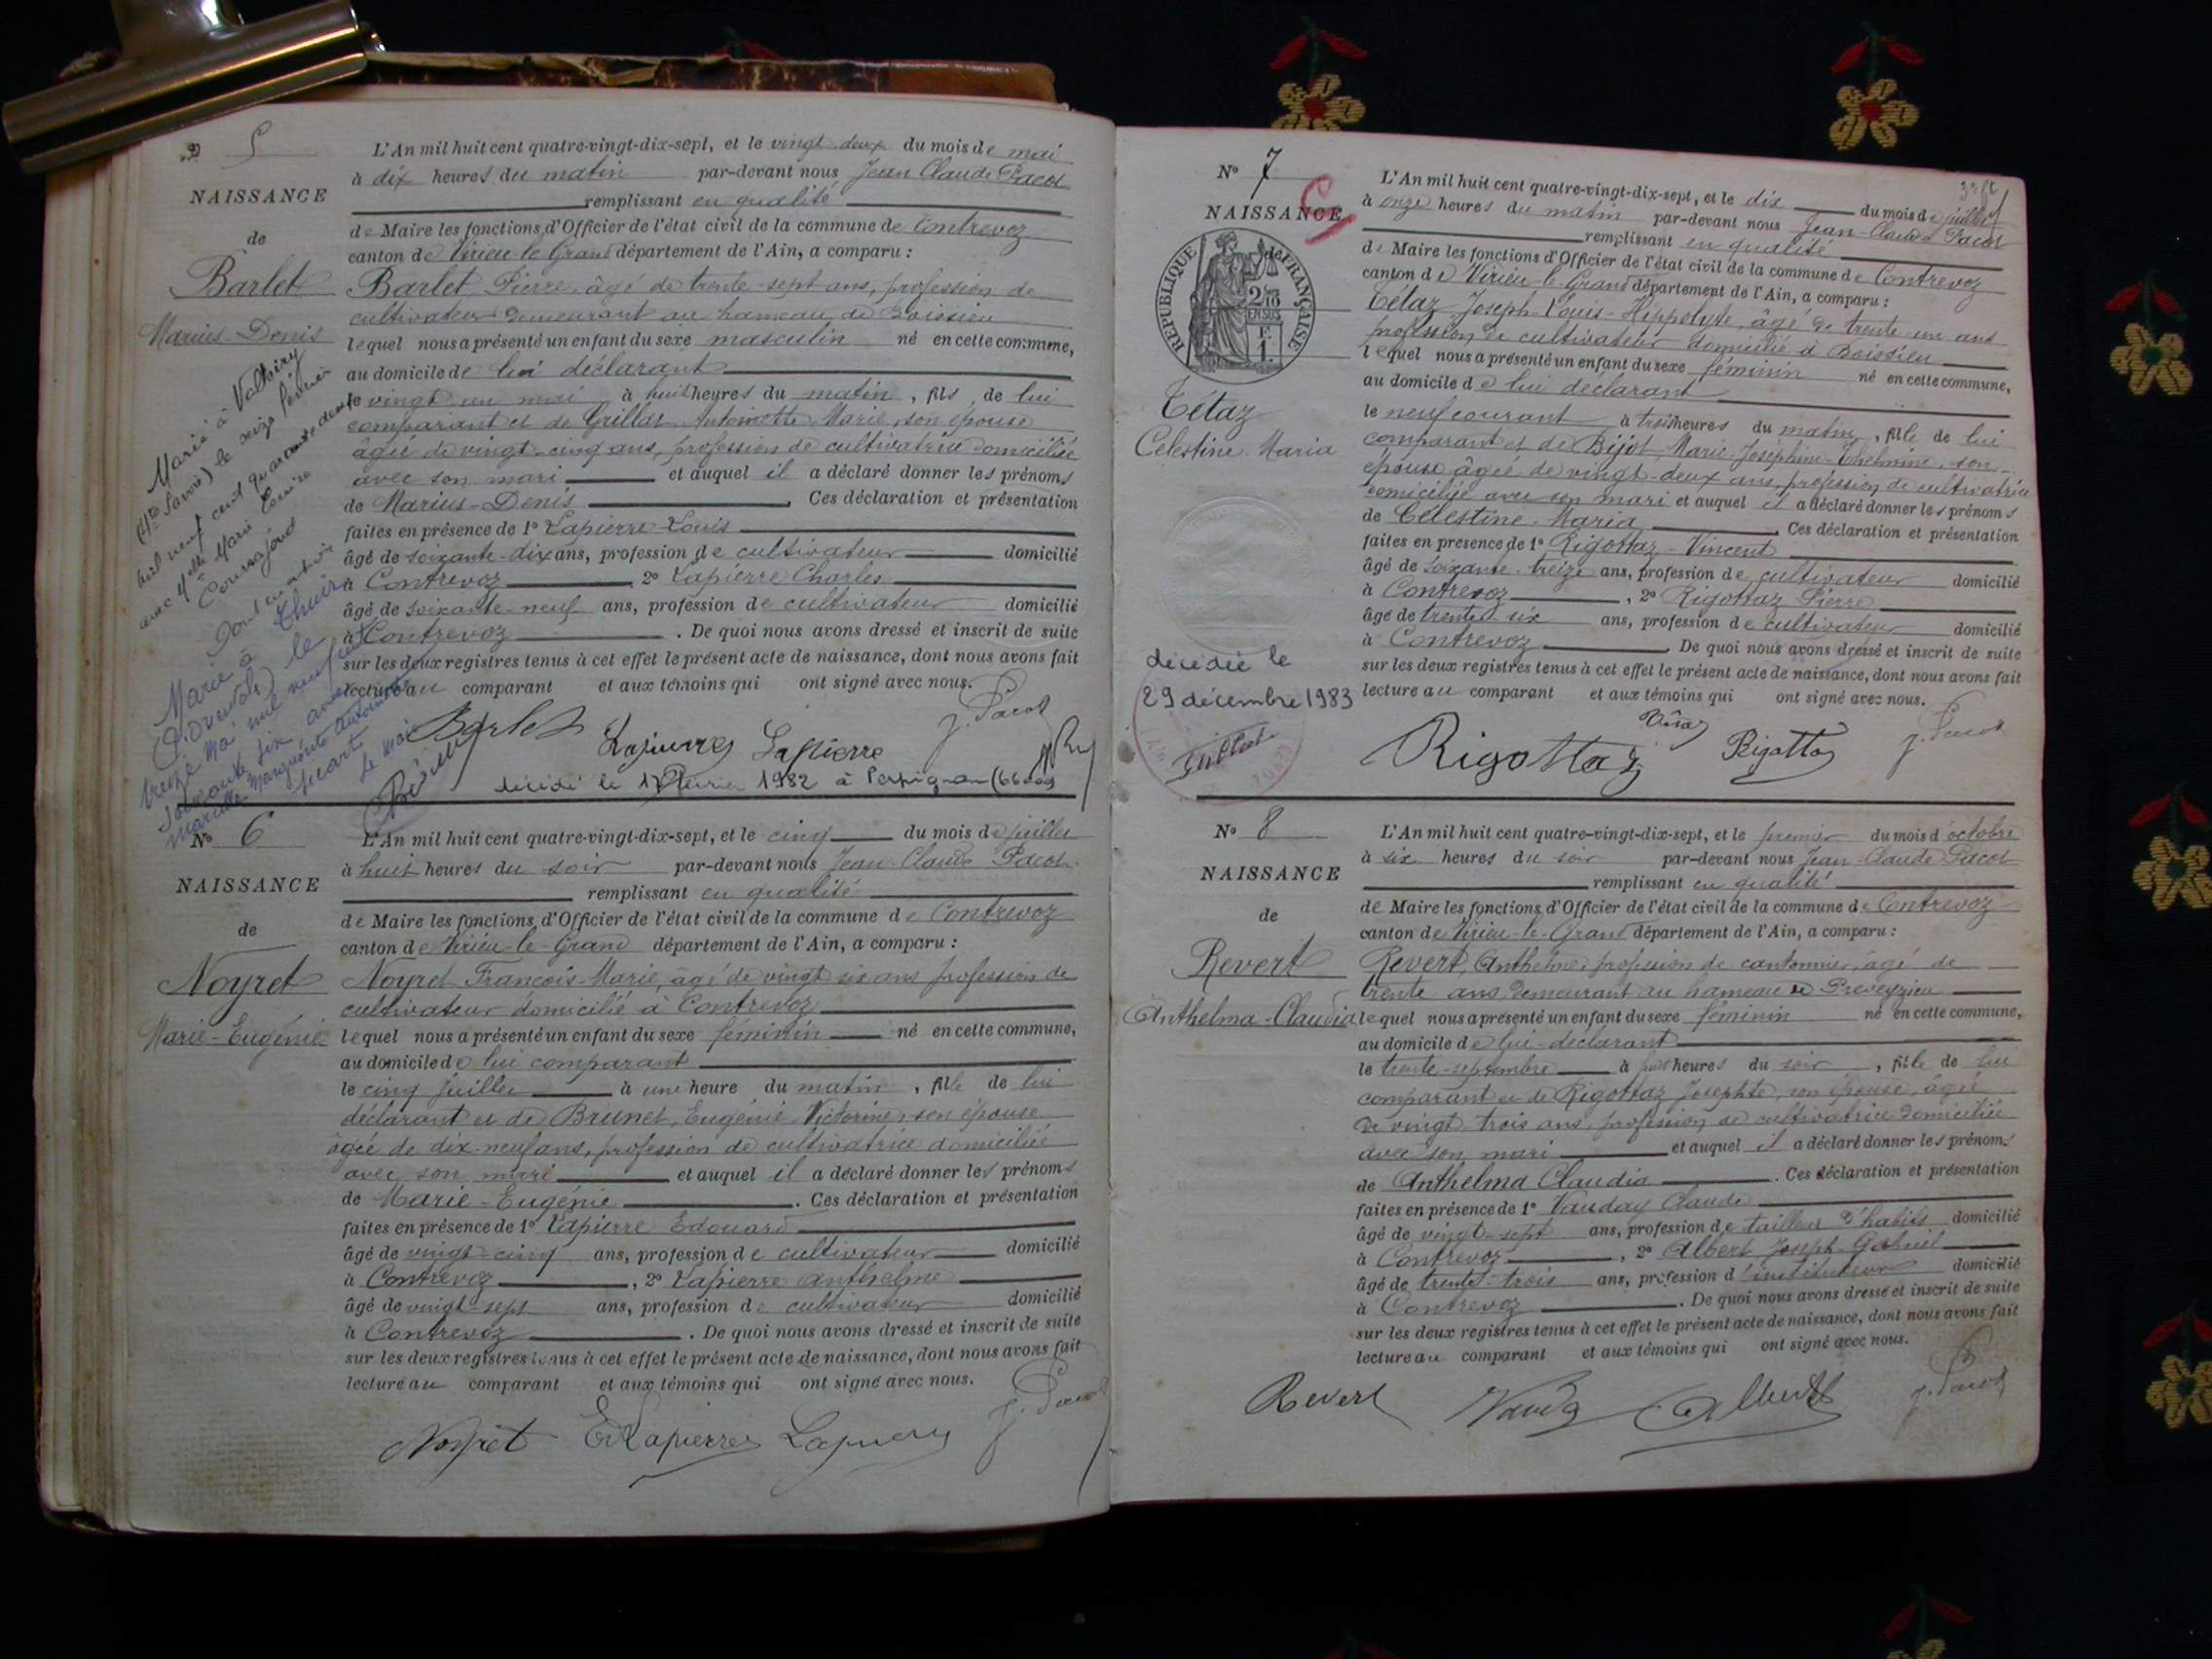 N° 5
NAISSANCE
de
Barlet
Marius-Denis
Marié à Valloiry
(Hte Savoie) le seize février
mil neuf cent quarante deux
avec Melle Marie Louise
Coursajoud
Marié à Thuir
(P. Orientales) le
treize mai mil neuf cent
soixante six avec
Marguerite Antoinette
Ricart
Le Maire
L'An mil huit cent quatre-vingt-dix-sept, et le vingt deux du mois de mai
à dix heures du matin par-devant nous Jean Claude Pacot
remplissant en qualité
de Maire les fonctions d'Officier de l'état civil de la commune de Contrevoz
canton de Virieu-le-Grand département de l'Ain, a comparu :
Barlet Pierre, âgé de trente-sept ans, profession de
cultivateur demeurant au hameau de Boissieu
lequel nous a présenté un enfant du sexe masculin né en cette commune,
au domicile de lui déclarant
le vingt un mai à huit heures du matin, fils de lui
comparant et de Grillat Antoinette Marie, son épouse
âgée de vingt-cinq ans, profession de cultivatrice domiciliée
avec son mari et auquel il a déclaré donner les prénoms
de Marius-Denis. Ces déclaration et présentation
faites en présence de 1° Lapierre Louis
âgé de soixante-dix ans, profession de cultivateur domicilié
à Contrevoz, 2° Lapierre Charles
âgé de soixante-neuf ans, profession de cultivateur domicilié
à Contrevoz. De quoi nous avons dressé et inscrit de suite
sur les deux registres tenus à cet effet le présent acte de naissance, dont nous avons fait
lecture au comparant et aux témoins qui ont signé avec nous.
Barlet Lapierre Lapierre J. Pacot
décédé le 17 février 1982 à Perpignan (66000)
N° 6
NAISSANCE
de
Noyret
Marie-Eugénie
L'An mil huit cent quatre-vingt-dix-sept, et le cinq du mois de juillet
à huit heures du soir par-devant nous Jean Claude Pacot
remplissant en qualité
de Maire les fonctions d'Officier de l'état civil de la commune de Contrevoz
canton de Virieu-le-Grand département de l'Ain, a comparu :
Noyret François-Marie, âgé de vingt six ans profession de
cultivateur domicilié à Contrevoz
lequel nous a présenté un enfant du sexe féminin né en cette commune,
au domicile de lui comparant
le cinq juillet à une heure du matin, fille de lui
déclarant et de Brunet, Eugénie Victorine, son épouse
âgée de dix-neuf ans, profession de cultivatrice domiciliée
avec son mari et auquel il a déclaré donner les prénoms
de Marie-Eugénie. Ces déclaration et présentation
faites en présence de 1° Lapierre Edouard
âgé de vingt-cinq ans, profession de cultivateur domicilié
à Contrevoz, 2° Lapierre Anthelme
âgé de vingt-sept ans, profession de cultivateur domicilié
à Contrevoz. De quoi nous avons dressé et inscrit de suite
sur les deux registres tenus à cet effet le présent acte de naissance, dont nous avons fait
lecture au comparant et aux témoins qui ont signé avec nous.
Noyret E. Lapierre Lapierre J. Pacot
N° 7
NAISSANCE
RÉPUBLIQUE FRANÇAISE
2/10 EN SUS
F. 1.
Tétaz
Celestine Maria
décédée le
29 décembre 1983
L'An mil huit cent quatre-vingt-dix-sept, et le dix du mois de juillet
à onze heures du matin par-devant nous Jean-Claude Pacot
remplissant en qualité
de Maire les fonctions d'Officier de l'état civil de la commune de Contrevoz
canton de Virieu-le-Grand département de l'Ain, a comparu :
Tétaz Joseph-Louis-Hippolyte, âgé de trente-un ans
profession de cultivateur domicilié à Boissieu
lequel nous a présenté un enfant du sexe féminin né en cette commune,
au domicile de lui déclarant
le neuf courant à trois heures du matin, fille de lui
comparant et de Bijot Marie-Joséphine-Thelmine, son
épouse âgée de vingt-deux ans, profession de cultivatrice
domiciliée avec son mari et auquel il a déclaré donner les prénoms
de Célestine-Maria. Ces déclaration et présentation
faites en présence de 1° Rigottaz Vincent
âgé de soixante-treize ans, profession de cultivateur domicilié
à Contrevoz, 2° Rigottaz Pierre
âgé de trente six ans, profession de cultivateur domicilié
à Contrevoz. De quoi nous avons dressé et inscrit de suite
sur les deux registres tenus à cet effet le présent acte de naissance, dont nous avons fait
lecture au comparant et aux témoins qui ont signé avec nous.
Rigottaz Rigottaz J. Pacot
N° 8
NAISSANCE
de
Revert
Anthelma-Claudia
L'An mil huit cent quatre-vingt-dix-sept, et le premier du mois d'octobre
à six heures du soir par-devant nous Jean-Claude Pacot
remplissant en qualité
de Maire les fonctions d'Officier de l'état civil de la commune de Contrevoz
canton de Virieu-le-Grand département de l'Ain, a comparu :
Revert, Anthelme, profession de cantonnier, âgé de
trente ans, demeurant au hameau de Preveyzieu
lequel nous a présenté un enfant du sexe féminin né en cette commune,
au domicile de lui-déclarant
le trente-septembre à heures du soir, fille de lui
comparant et de Rigottaz Josephte, son épouse, âgée
de vingt trois ans, profession de cultivatrice domiciliée
avec son mari et auquel il a déclaré donner les prénoms
de Anthelma Claudia. Ces déclaration et présentation
faites en présence de 1° Vauday Claude
âgé de vingt-sept ans, profession de tailleur d'habits domicilié
à Contrevoz, 2° Albert Joseph-Gabriel
âgé de trente-trois ans, profession d'instituteur domicilié
à Contrevoz. De quoi nous avons dressé et inscrit de suite
sur les deux registres tenus à cet effet le présent acte de naissance, dont nous avons fait
lecture au comparant et aux témoins qui ont signé avec nous.
Revert Vauday Albert J. Pacot